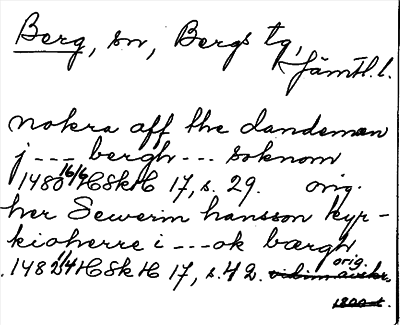 Berg, sn, Bergs tg,
Jämtl. l.
nokra aff the dandemen
j --- bergh --- soknom
1480 16/6 HSkH 17, s. 29. orig.
her Sewerin hansson kyr-
kioherre i --- ok bærgh
1482 1/4 HSkH 17, s. 42. orig.